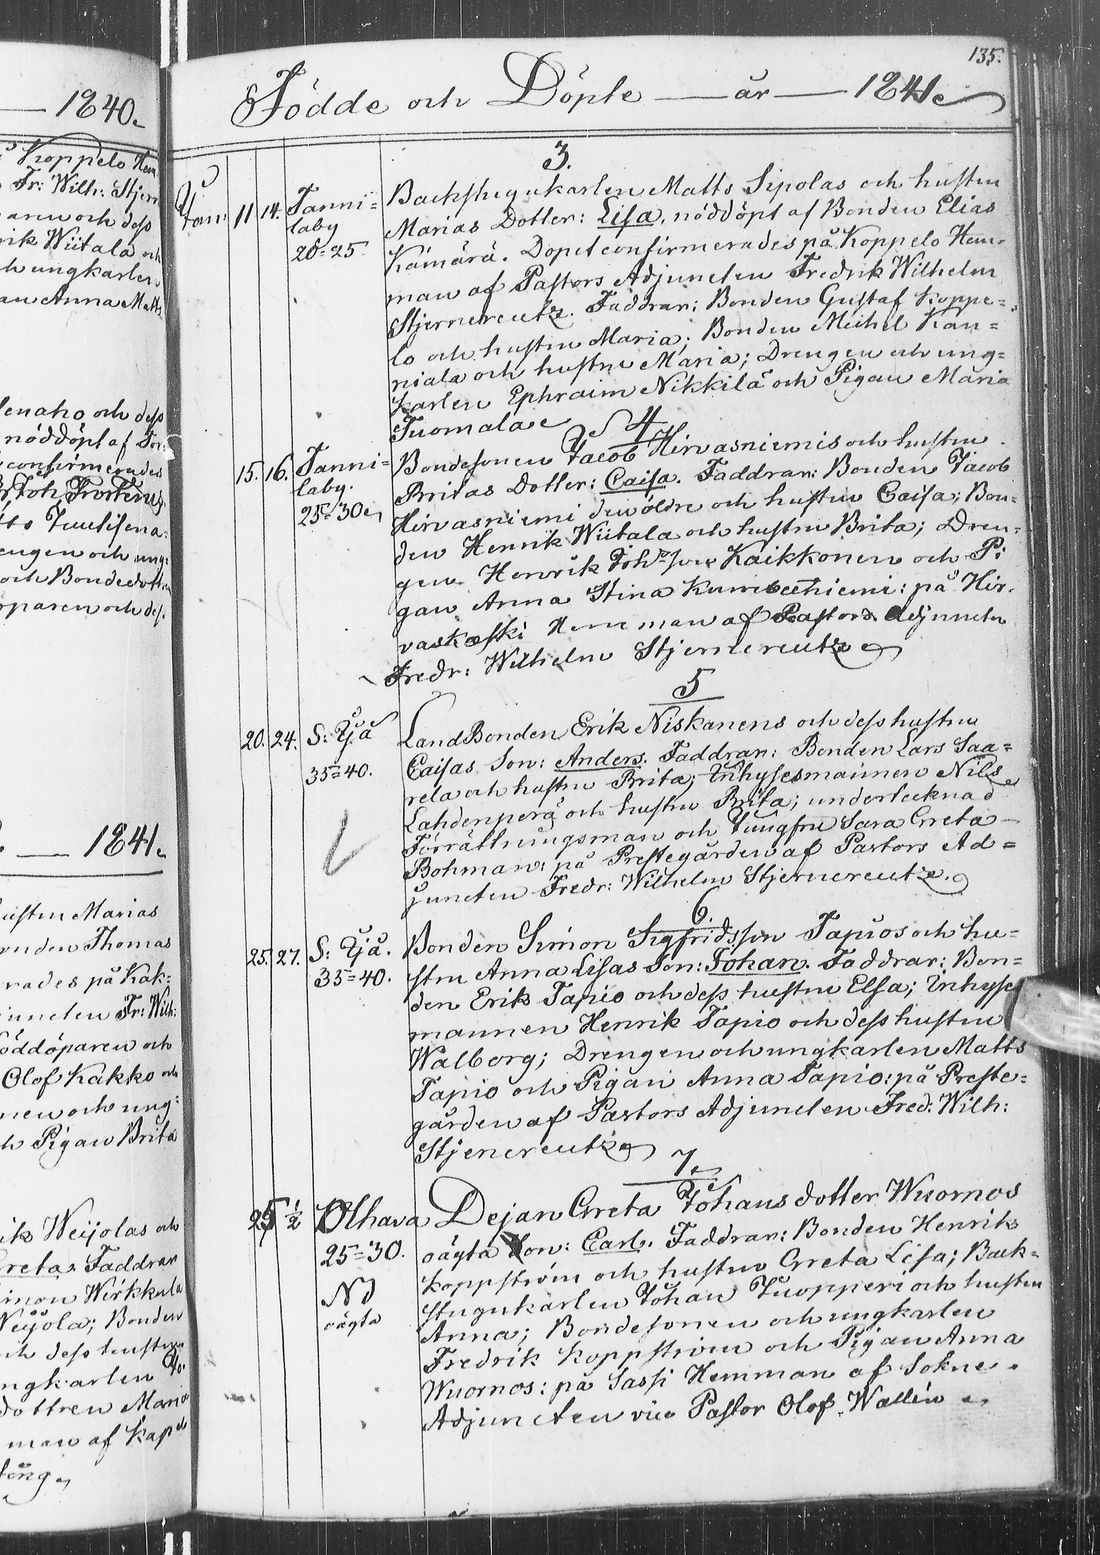 1840.
Koppelo Hem
Fr: Wilh: Stjer
aren och dess
rik Wiitala och
h ungkarlen
an Anna Matts
lenaho och dess
nöddöpt af
confirmerades
engen och ung=
och Bondedott
öparen och des
1841.
ustru Marias
onden Thomas
rades på Kak=
juncten Fr: Wilh:
öddöparen och
Olof Kakko och
nen och ung=
h Pigan Brita
rik Weijolas och
Greta. Faddrar
imon Wirkkula
Weijola; Bonden
ch dess hustru
ngkarlen
dottren Maria
man af Kap
135.
Födde och Döpte — år — 1841.
3.
Jan: 11. 14. Tanni=
laby
20=25.
Backstugukarlen Matts Sipolas och hustru
Marias Dotter: Lisa, nöddöpt af Bonden Elias
Kämärä. Dopet confirmerades på Koppelo Hem=
man af Pastors Adjuncten Fredrik Wilhelm
Stjernereutz. Faddrar: Bonden Gustaf Koppe=
lo och hustru Maria; Bonden Michel Kau=
niala och hustru Maria; Drengen och ung=
karlen Ephraim Nikkilä och Pigan Maria
Tuomala
4
15. 16. Tanni=
laby.
25=30
Bondesonen Jacob Hirvasniemis och hustru
Britas Dotter: Caisa. Faddrar: Bonden Jacob
Hirvasniemi den äldre och hustru Caisa; Bon=
den Henrik Wiitala och hustru Brita; Dren=
gen Henrik Joh:s son Kaikkonen och Pi
gan Anna Stina: på Hir=
vaskoski Hemman af Pastors Adjuncten
Fredr: Wilhelm Stjernereutz
5
20. 24. S: Ijå
35=40.
LandBonden Erik Niskanens och dess hustru
Caisas Son: Anders. Faddrar: Bonden Lars Saa=
rela och hustru Brita; Inhysesmannen Nils
Lahdenperä och hustru Brita; undertecknad
Förrättningsman och Jungfru Sara Greta
Bohman: på Prestegården af Pastors Ad=
juncten Fredr: Wilhelm Stjernereutz.
6
25. 27. S: Ijå.
35=40.
Bonden Simon Sigfridsson Tapios och hu=
stru Anna Lisas Son: Johan. Faddrar: Bon=
den Erik Tapio och dess hustru Elsa; Inhyses
mannen Henrik Tapio och dess hustru
Walborg; Drengen och ungkarlen Matts
Tapio och Pigan Anna Tapio: på Preste=
gården af Pastors Adjuncten Fred: Wilh:
Stjenereutz
7
25 1/2 Olhava
25=30.
Nd
oägta
Dejan Greta Johansdotter Wuornos
oägta Son: Carl. Faddrar: Bonden Henrik
Koppström och hustru Greta Lisa; Back=
stugukarlen Johan Tuopperi och hustru
Anna; Bondesonen och ungkarlen
Fredrik Koppström och Pigan Anna
Wuornos: på Sassi Hemman af Sokne
Adjuncten vice Pastor Olof Wallin